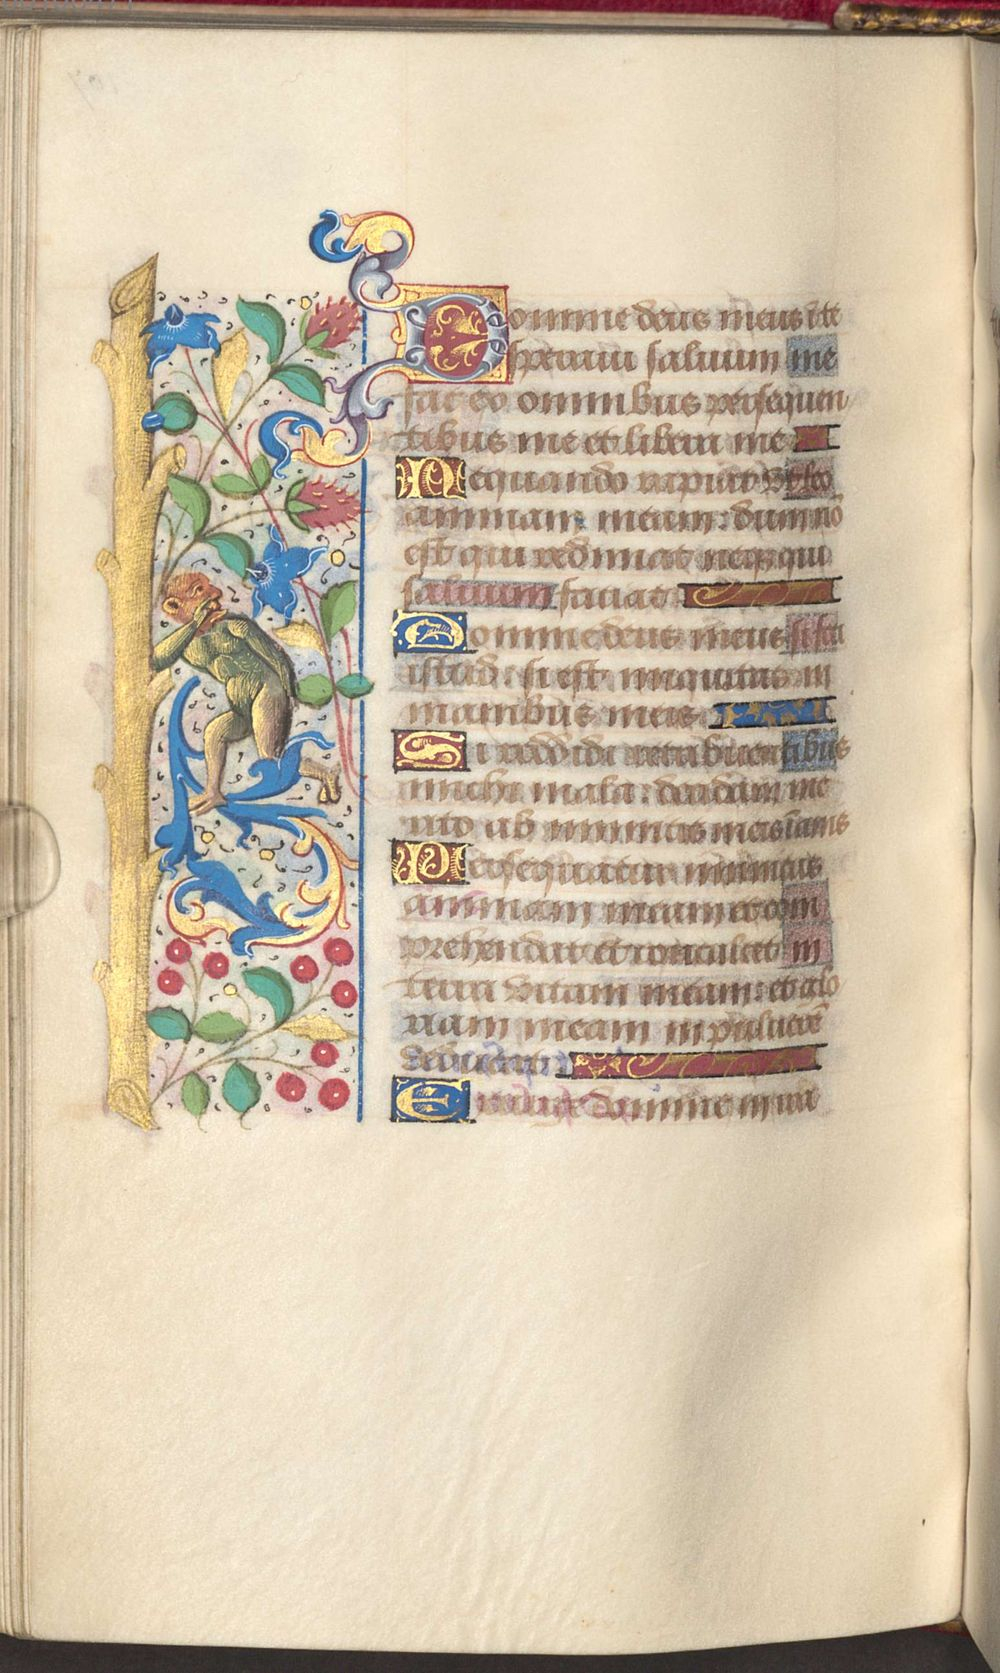 Domine deus meus ī te
speraui saluum me
fac ex omnibus persequen
tibus me et libera me
Nequando rapiat ut leo
animam meam: dum nō
est qui redimat neqз qui
saluum faciat
Domine deus meus si feci
istud: si est iniquitas in
manibus meis
Si reddidi retribuentibus
michi mala: decidam me
rito ab inimicis meis īanis
Persequatur inimicus
animam meam et com
prehendat et conculcet in
terra vitam meam: et glo
riam meam in puluerē
deducat
Exurge domine in ira